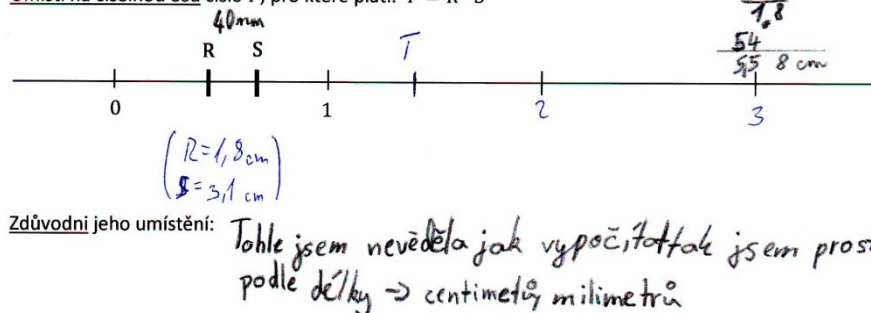 číslo T, pro které platí: T = R · S
40mm
1,8
54
5,5 8 cm
R S T
0 1 2 3
(R=1,8 cm
S=3,1 cm)
Zdůvodni jeho umístění: Tohle jsem nevěděla jak vypočítat tak jsem pros
podle délky → centimetrů, milimetrů